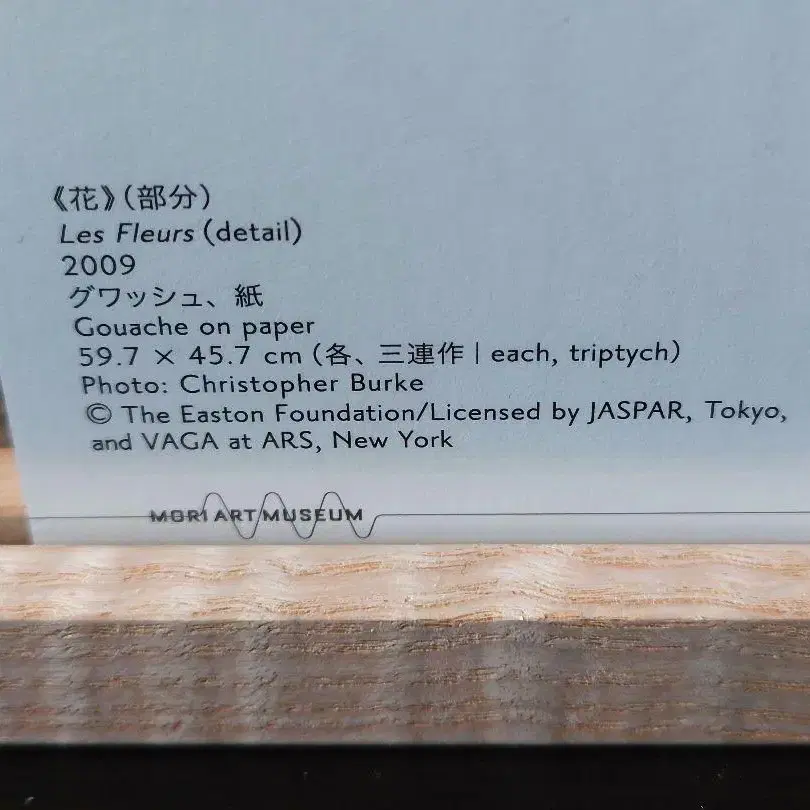 《花》(部分)
Les Fleurs (detail)
2009
グワッシュ、紙
Gouache on paper
59.7 × 45.7 cm (各、三連作 | each, triptych)
Photo: Christopher Burke
© The Easton Foundation/Licensed by JASPAR, Tokyo,
and VAGA at ARS, New York
MORI ART MUSEUM